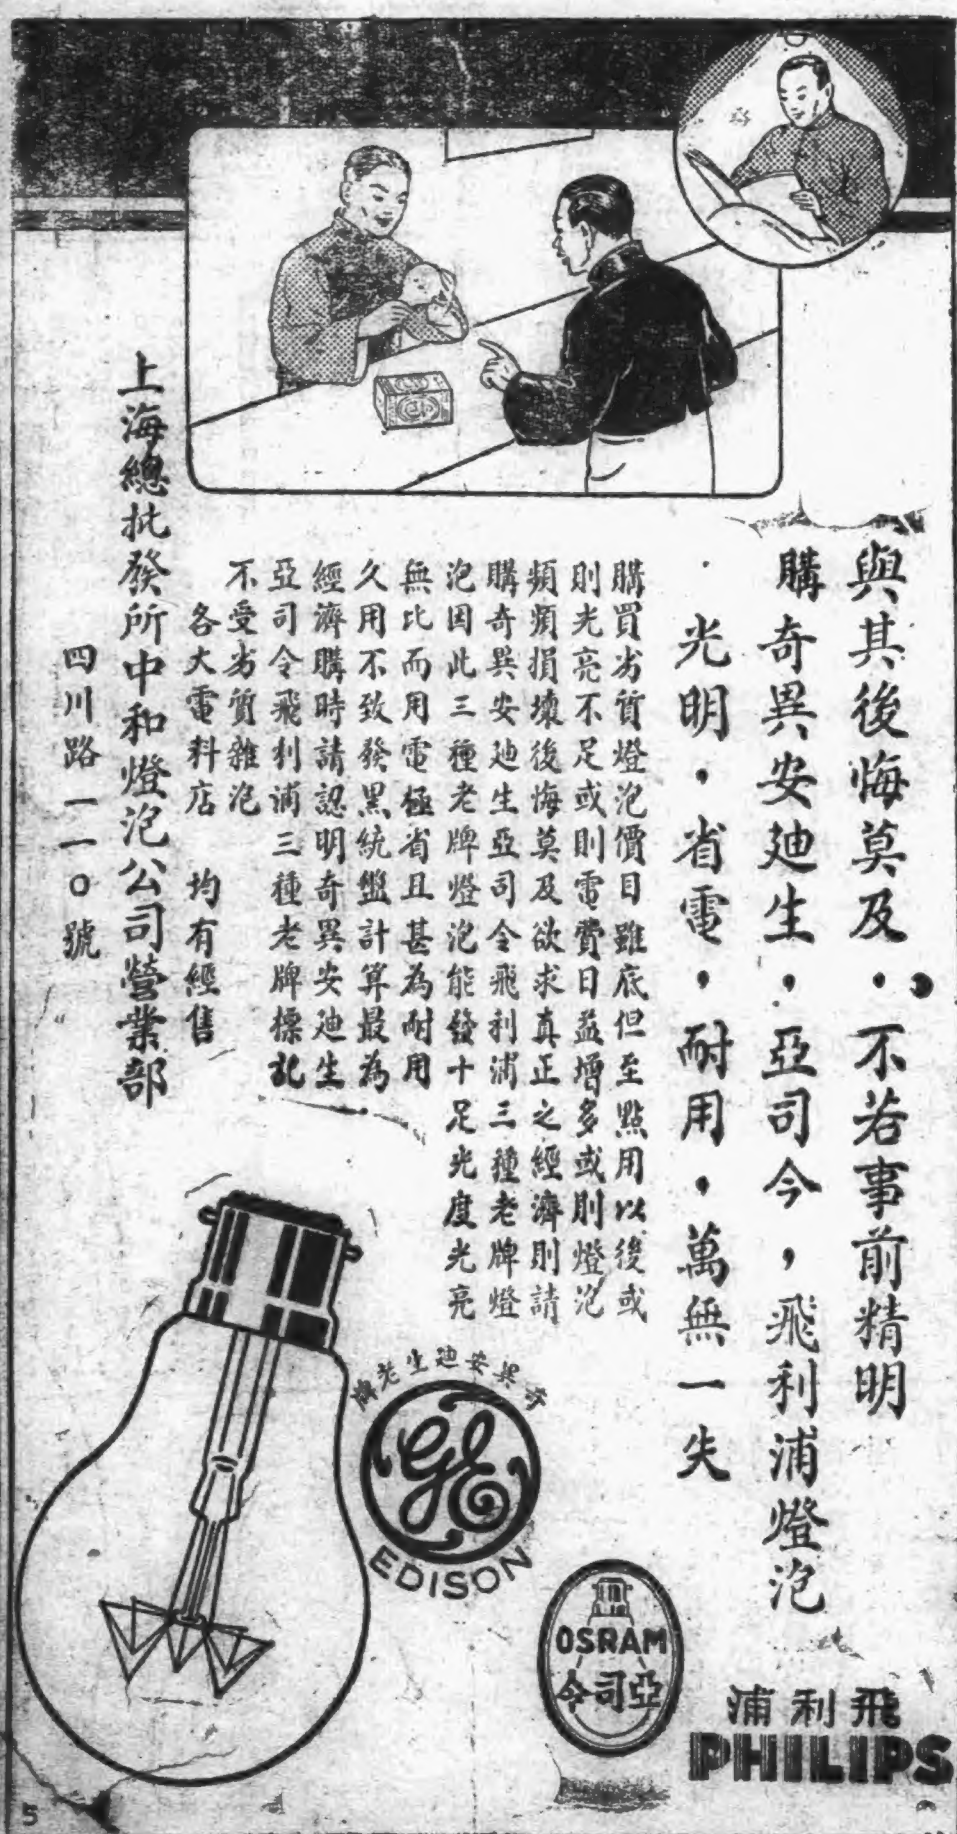 與其後悔莫及，不若事前精明
購奇異安廸生，亞司令，飛利浦燈泡
光明，省電，耐用，萬無一失
購買劣質燈泡價目雖底但至點用以後或
則光亮不足或則電費日益增多或則燈泡
頻頻損壞後悔莫及欲求真正之經濟則請
購奇異安廸生亞司令飛利浦三種老牌燈
泡因此三種老牌燈泡能發十足光度光亮
無比而用電極省且甚為耐用
久用不致發黑統盤計算最為
經濟購時請認明奇異安廸生
亞司令飛利浦三種老牌標記
不受劣質雜泡
各大電料店 均有經售
上海總批發所中和燈泡公司營業部
四川路一一〇號
奇異安廸生老牌
GE
EDISON
OSRAM
亞司令
飛利浦
PHILIPS
5